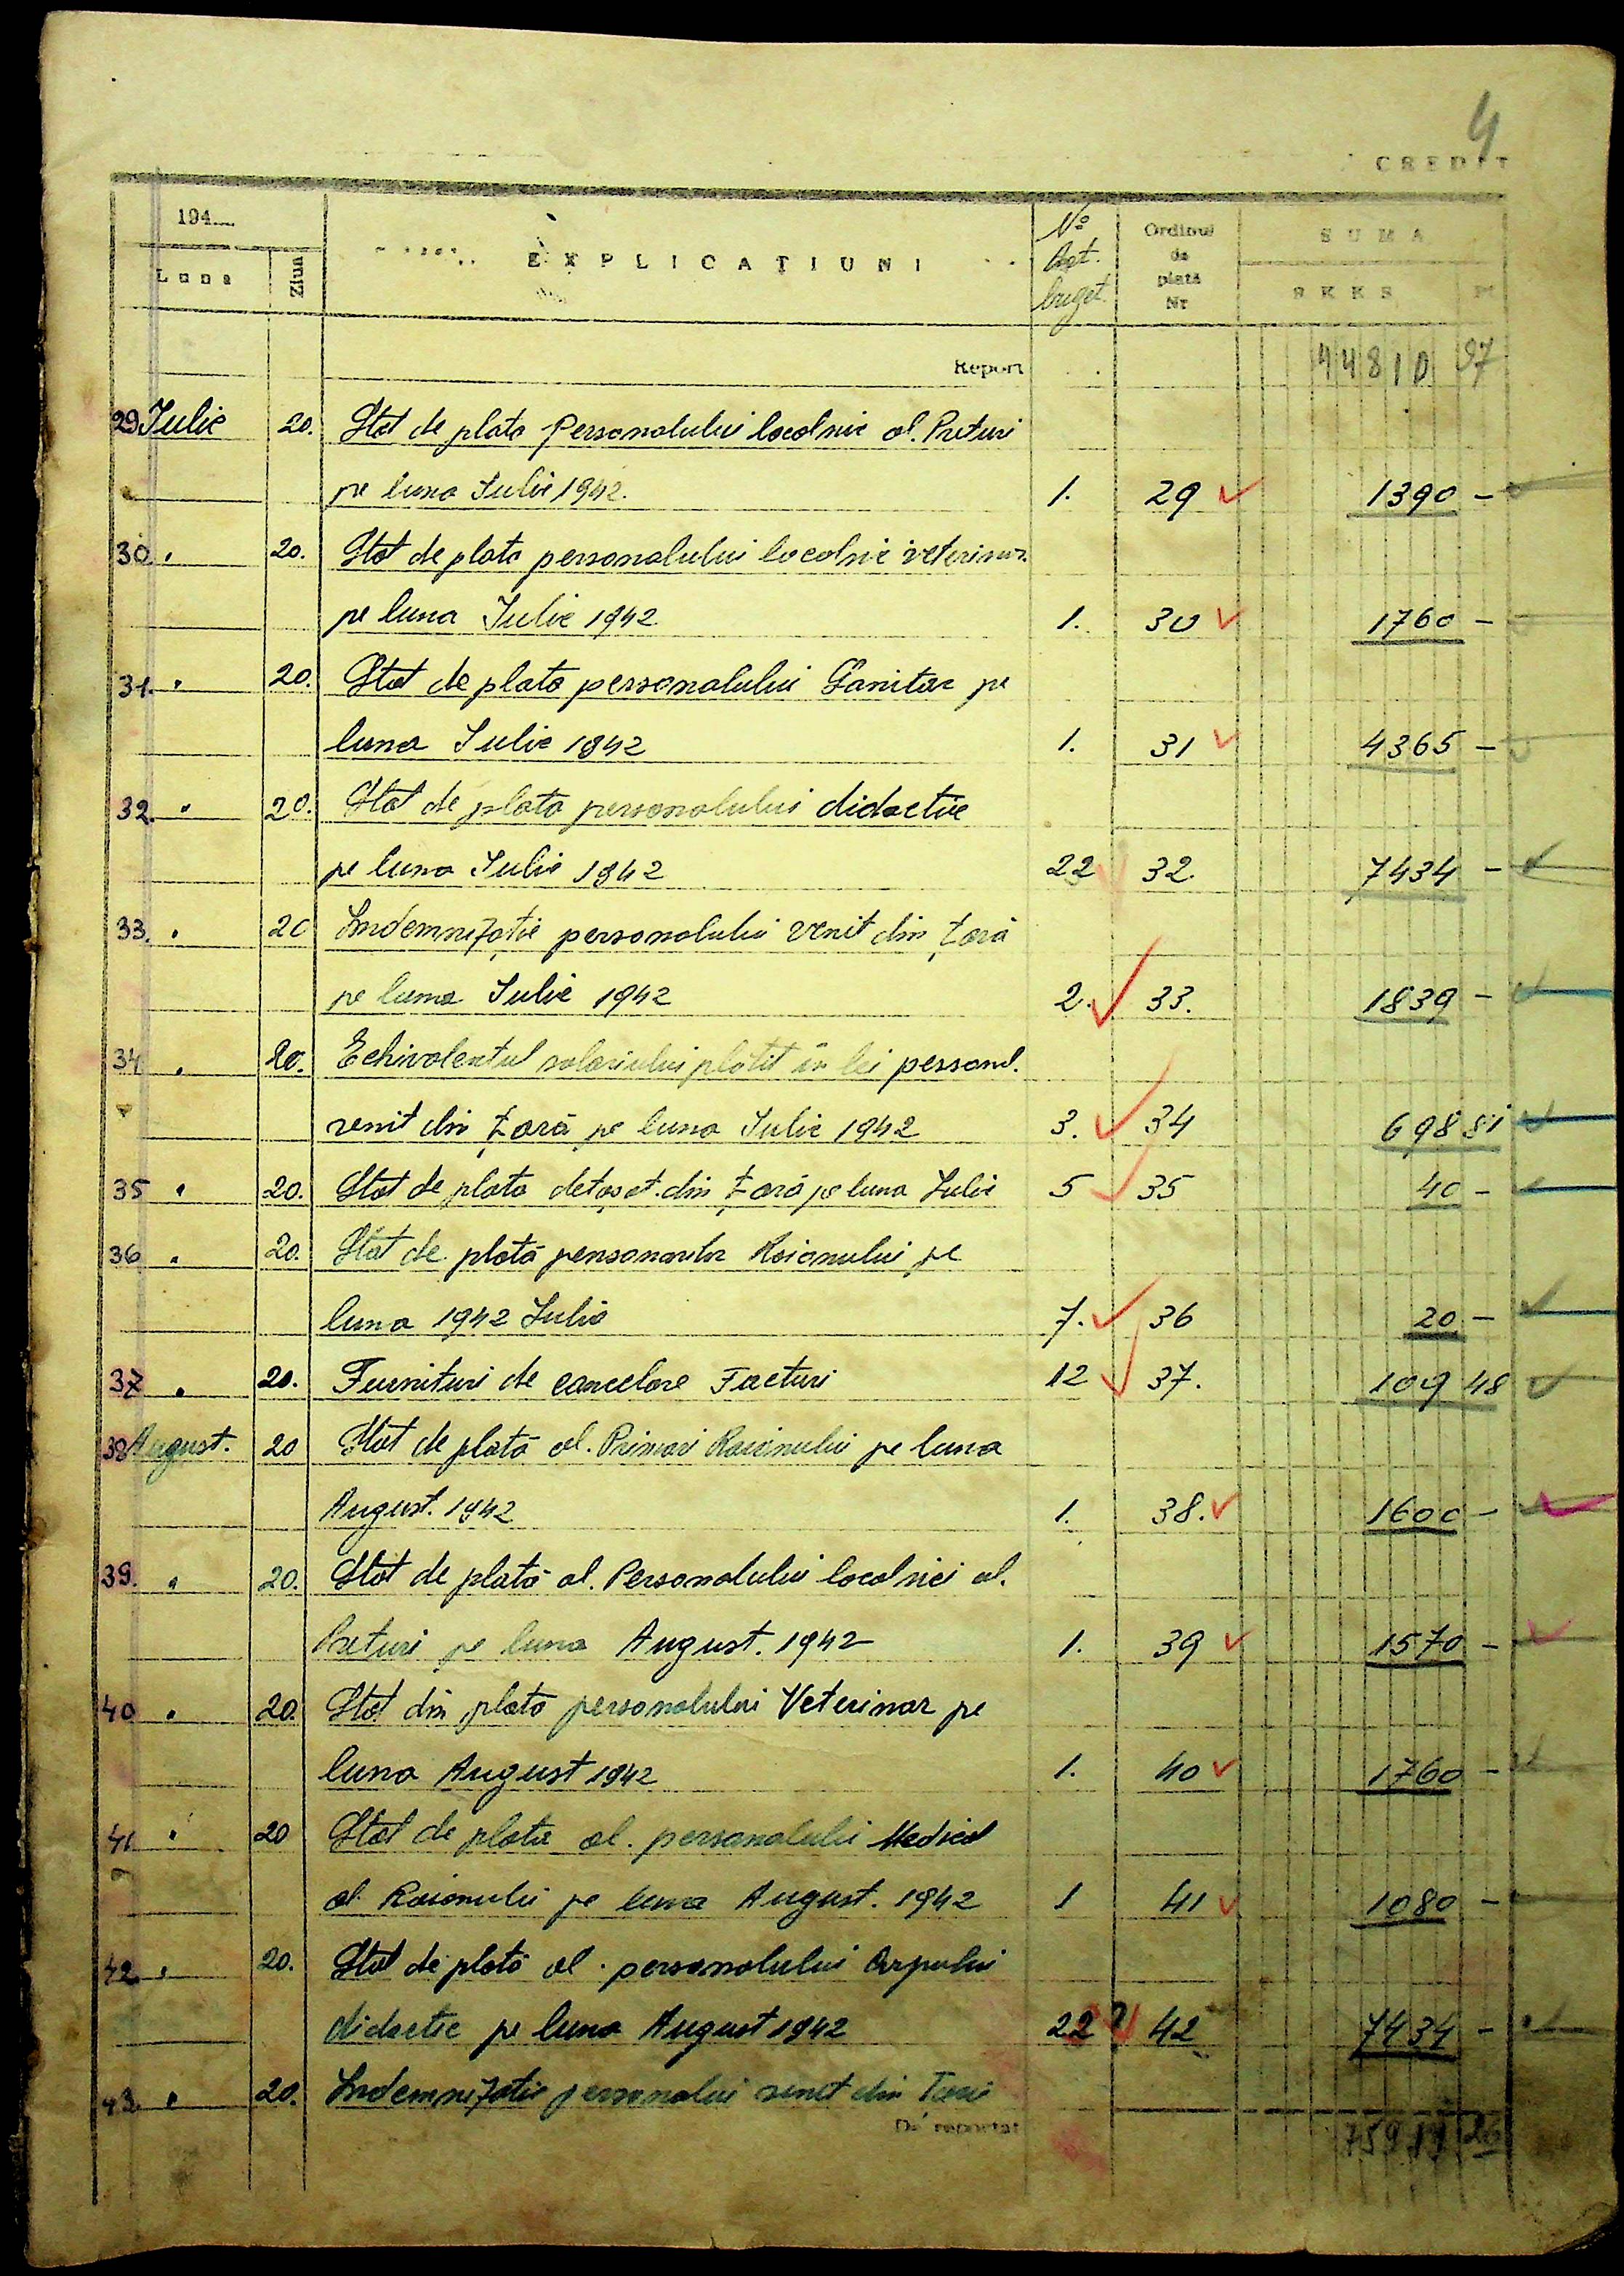 4
CREDIT
194
Luna
Ziua
EXPLICAȚIUNI
No Art. buget.
Ordinul de plată Nr
SUMA
RKKS
Report 44810 97
29 Iulie 20. Stat de plata Personalului localnic al. Preturi
pe luna Iulie 1942. 1. 29 1390 -
30 " 20. Stat de plata personalului localnic veterinar.
pe luna Iulie 1942 1. 30 1760 -
31. " 20. Stat de plata personalului Sanitar pe
luna Iulie 1942 1. 31 4365 -
32. " 20. Stat de plata personalului didactic
pe luna Iulie 1942 22 32. 7434 -
33. " 20 Indemnizație personalului venit din țară
pe luna Iulie 1942 2. 33. 1839 -
34 " 20. Echivalentul salariului plătit în lei personl.
venit din țară pe luna Iulie 1942 3. 34 698 81
35 " 20. Stat de plata detașat. din țară pe luna Iulie 5 35 40 -
36 " 20. Stat de plată pensionarilor Raionului pe
luna 1942 Iulie 7. 36 20 -
37 " 20. Furnituri de cancelare Facturi 12 37. 109 48
38 August. 20 Stat de plată al. Primari Raionului pe luna
August. 1942 1. 38. 1600 -
39. " 20. Stat de plată al. Personalului localnici al.
Preturi pe luna August. 1942 1. 39 1570 -
40 " 20. Stat din plata personalului Veterinar pe
luna August 1942 1. 40 1760 -
41 " 20 Stat de plata al. personalului Medical
al Raionului pe luna August. 1942 1 41 1080 -
42 " 20. Stat de plată al. personalului Corpului
didactic pe luna August 1942 22 ? 42 7434 -
43. " 20. Indemnizatie personalui venit din Țară
De reportat 75911 26